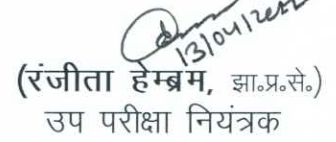 13/04/2022
(रंजीता हेम्ब्रम, झा.प्र.से.)
उप परीक्षा नियंत्रक